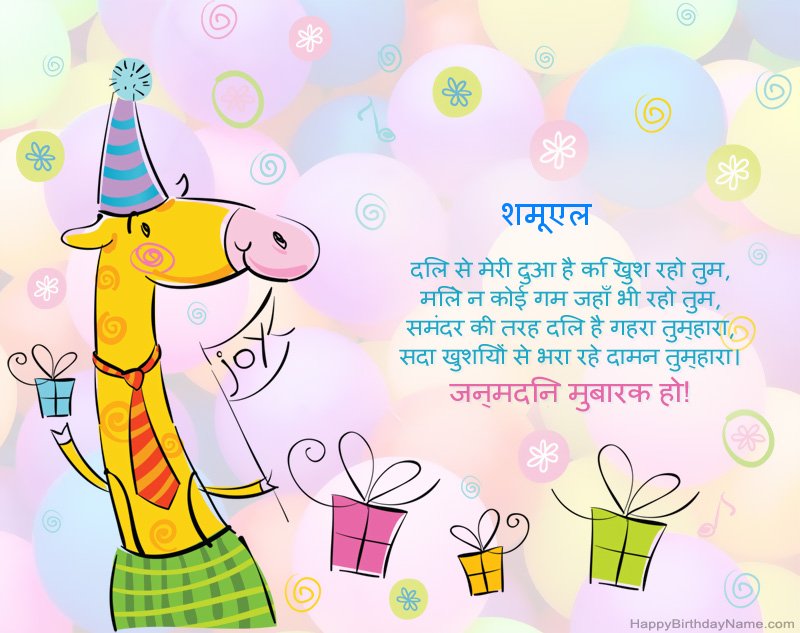 शमूएल
दलि से मेरी दुआ है कि खुश रहो तुम,
मलिे न कोई गम जहाँ भी रहो तुम,
समंदर की तरह दलि है गहरा तुम्‌हारा,
सदा खुशयिों से भरा रहे दामन तुम्‌हारा।
जन्‌मदनि मुबारक हो!
joy
HappyBirthdayName.com